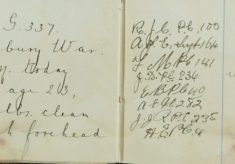 G. 337.
bury War.
y. today
age 23,
lbs. clean
t forehead
R.J.C. P.C. 100
A.S.E. Sergt 164
F M P.C. 141
J.D. P.C. 236
E B P.C. 40
A.F.G. 282
J.J.L. P.C. 235
H.E. P.C. 4